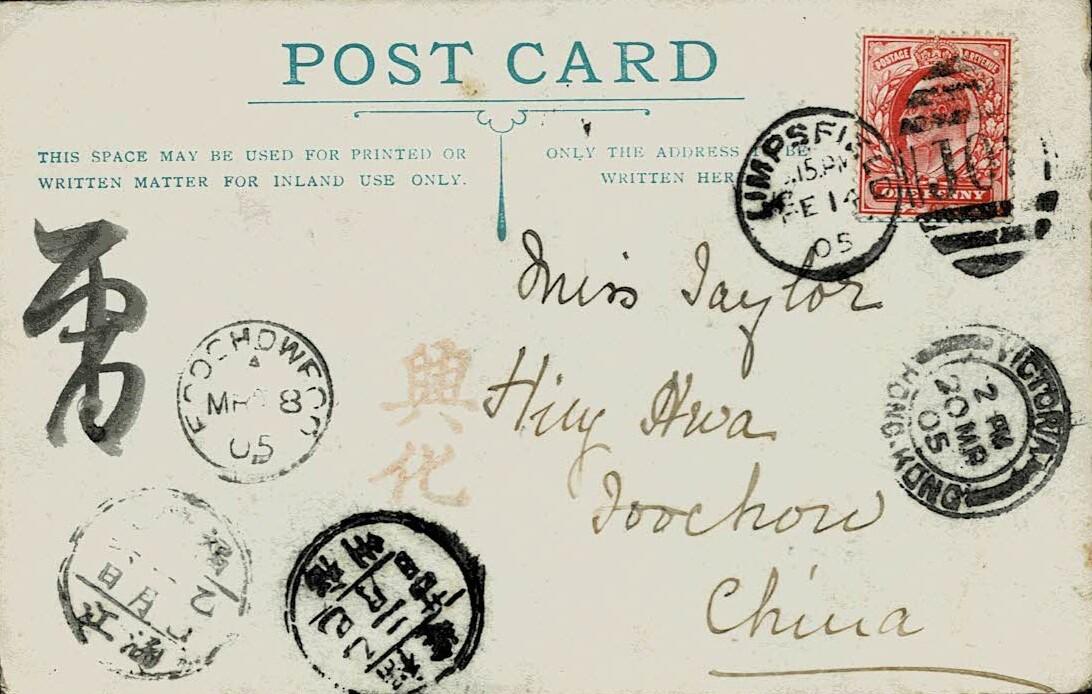 POST CARD
THIS SPACE MAY BE USED FOR PRINTED OR
WRITTEN MATTER FOR INLAND USE ONLY.
ONLY THE ADDRESS BE
WRITTEN HER
POSTAGE REVENUE
ONE PENNY
LIMPSFIELD
.15.PM
FE 14
05
Miss Taylor
Hing Hwa
Foochow
China
興
化
FOOCHOW
8
05
VICTORIA
2 PM
20 MR
05
HONG KONG